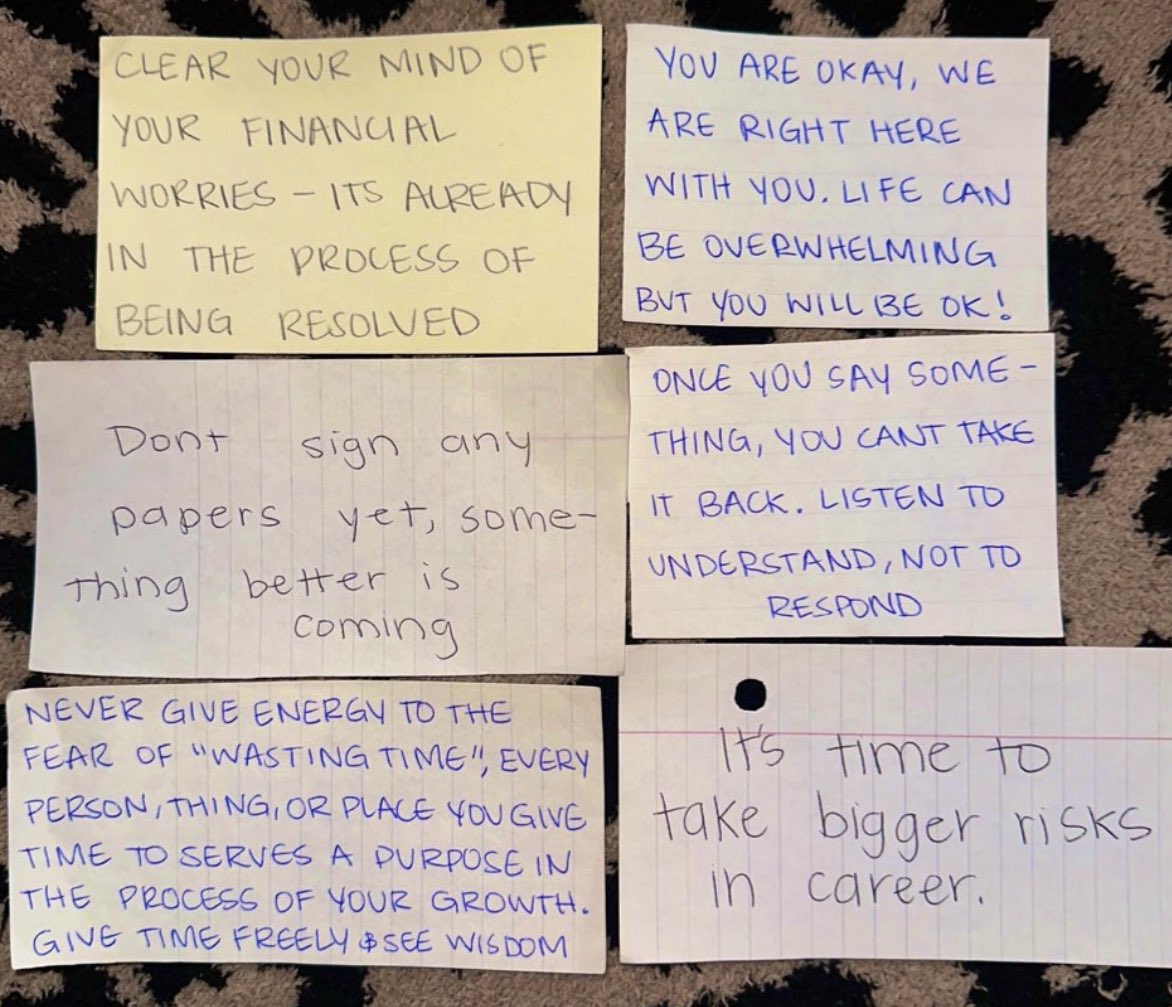 CLEAR YOUR MIND OF
YOUR FINANCIAL
WORRIES – ITS ALREADY
IN THE PROCESS OF
BEING RESOLVED
YOU ARE OKAY, WE
ARE RIGHT HERE
WITH YOU. LIFE CAN
BE OVERWHELMING
BUT YOU WILL BE OK!
Dont sign any
papers yet, some-
thing better is
coming
ONCE YOU SAY SOME-
THING, YOU CANT TAKE
IT BACK. LISTEN TO
UNDERSTAND, NOT TO
RESPOND
NEVER GIVE ENERGY TO THE
FEAR OF "WASTING TIME", EVERY
PERSON, THING, OR PLACE YOU GIVE
TIME TO SERVES A PURPOSE IN
THE PROCESS OF YOUR GROWTH.
GIVE TIME FREELY & SEE WISDOM
It's time to
take bigger risks
in career.